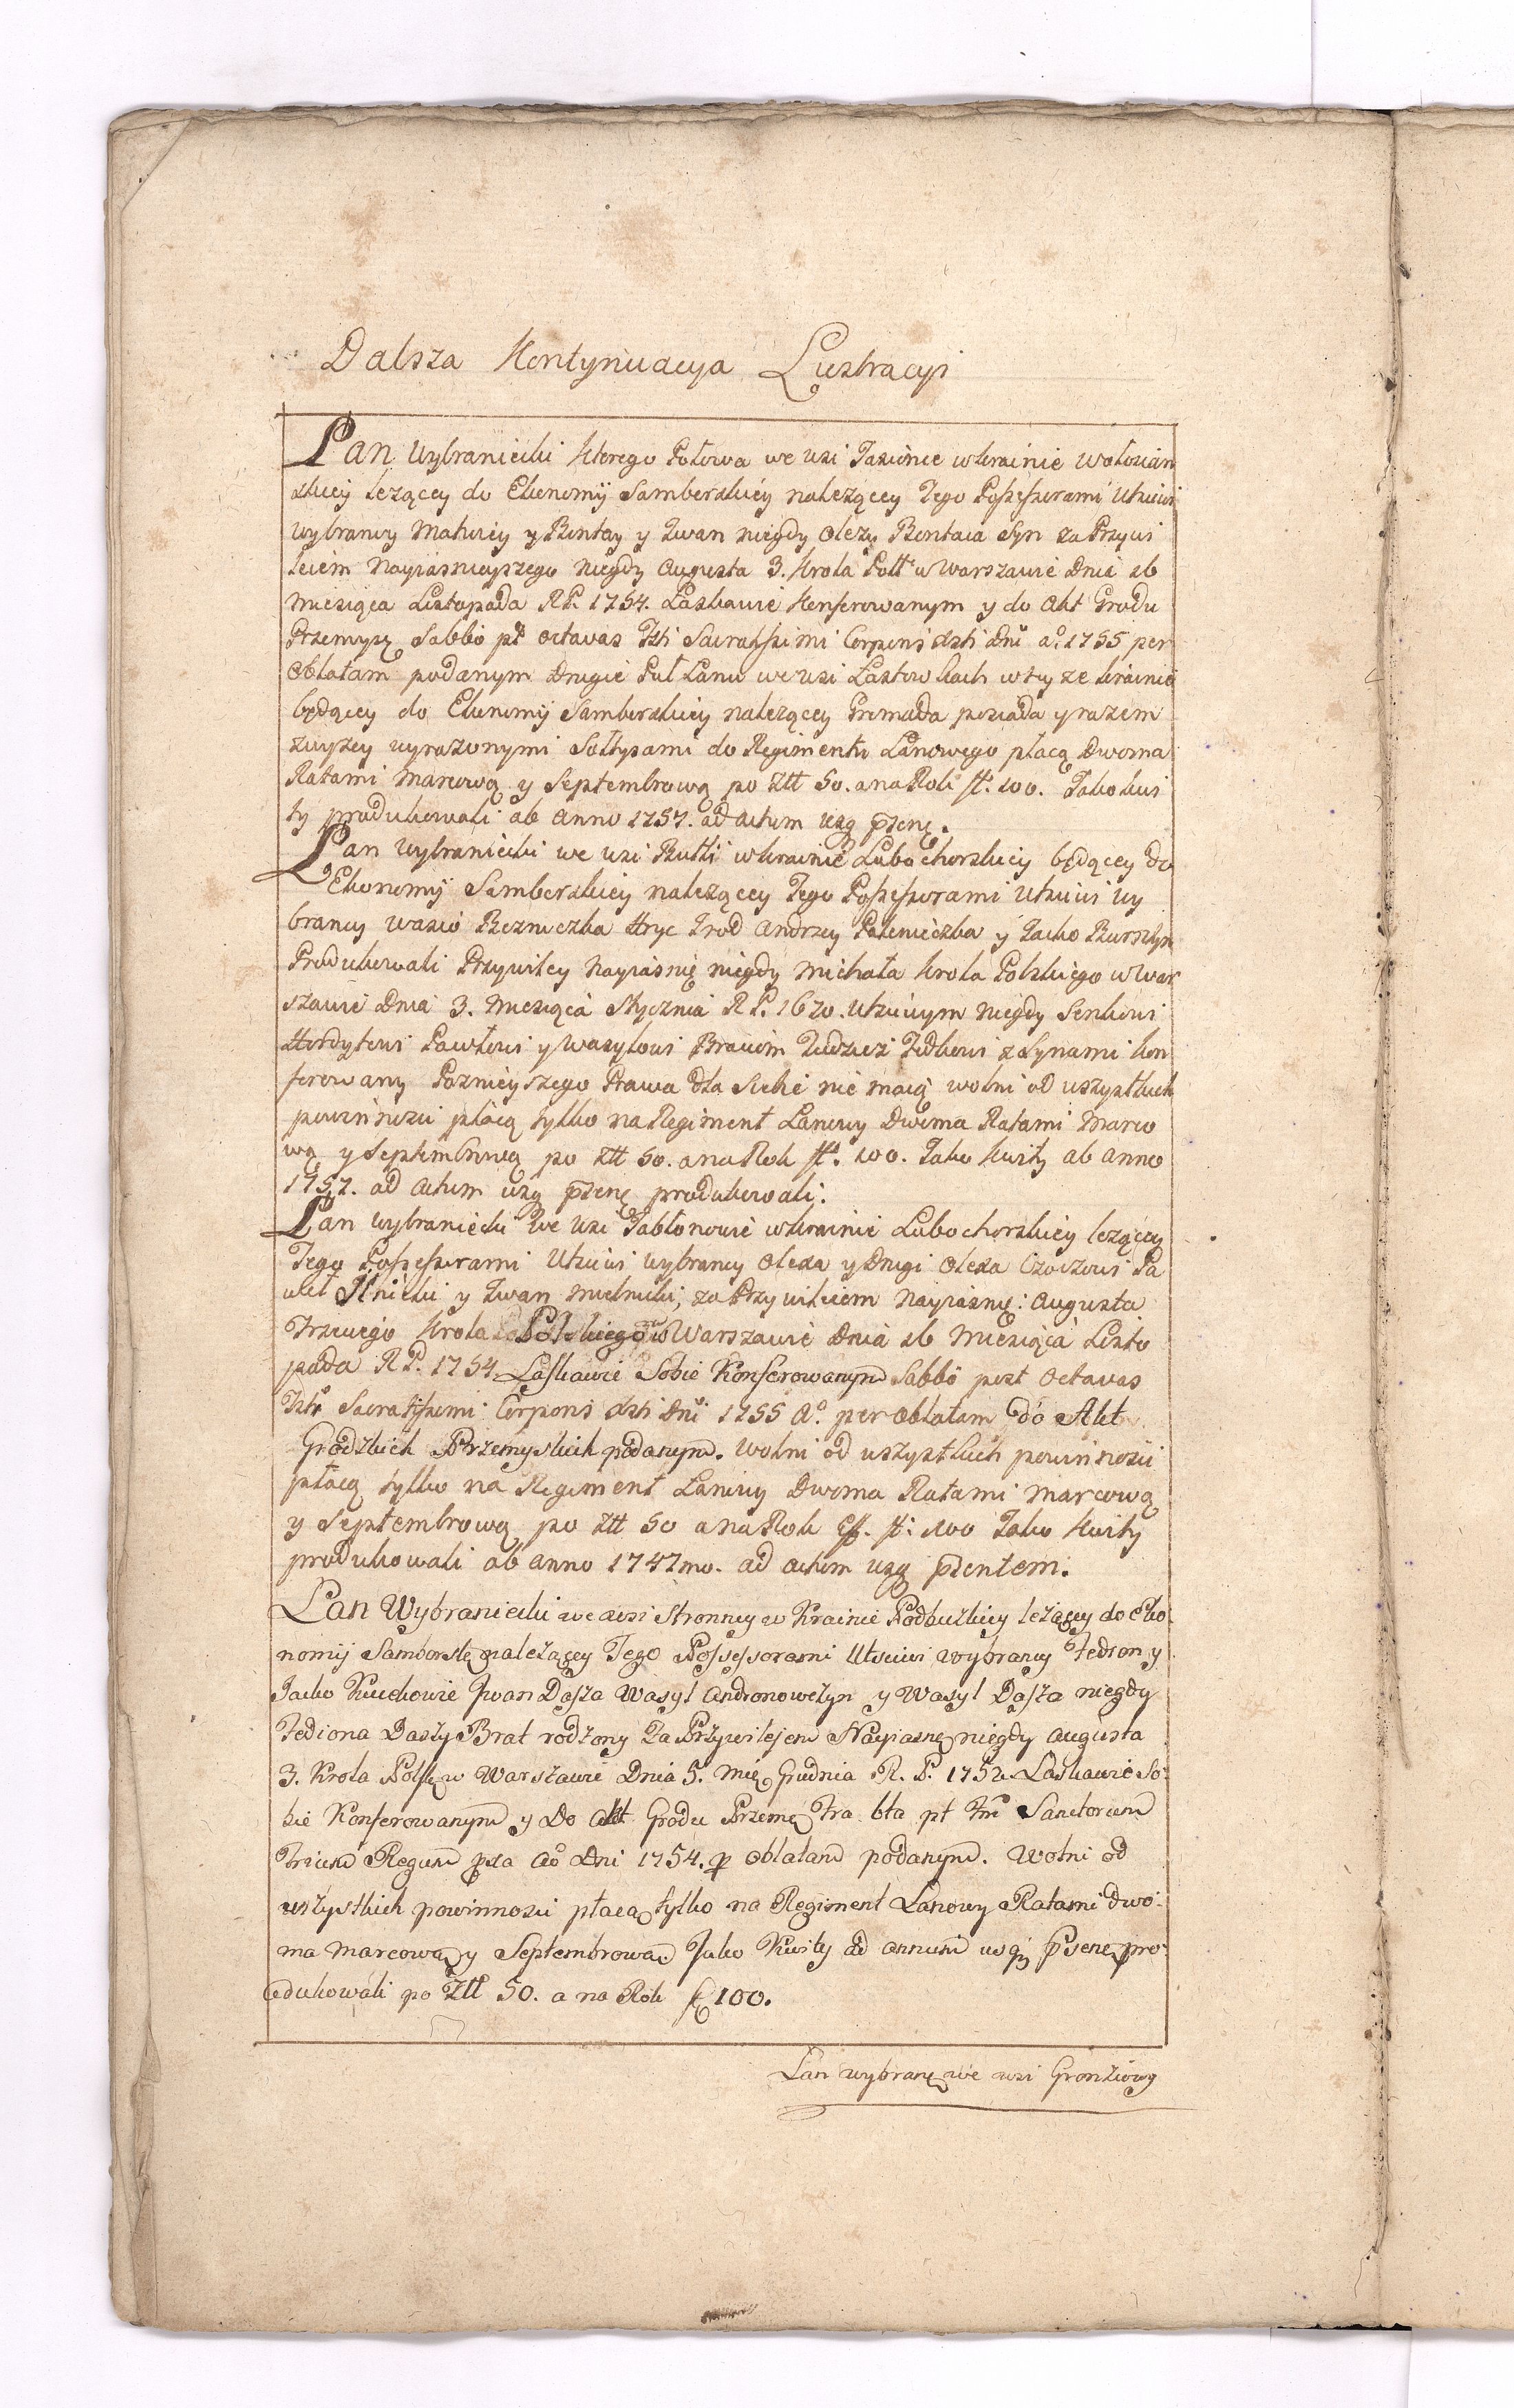 Dalsza Kontynuacya Lustracyi
Łan Wybraniecki ktorego Połowa we wsi Jasionce w krainie Wołosian
skiey leżącey do Ekonomij Samborskiey należącey Tego Possessorami Utsciwi
wybrancy Matwiey y Bentay y Iwan niegdy Olexy Bentaia Syn za Przywi
leiem Nayiasnieyszego niegdy Augusta 3. Krola Poll: w Warszawie Dnia 16
Miesiąca Listopada R.P. 1754. Łaskawie konferowanym y do Akt Grodu
Przemysz Sabbo pt octavas Fsti Sacratissimi Corporis Xsti Dni aº. 1755 per
Oblatam podanym Drugie Puł Łanu we wsi Łastowkach w teyze krainie
będącey do Ekonomij Samborskiey należącey Gromada posiada y razem
zwyszey wyrazonymi Sołtysami do Regimentu Łanowego płacą Dwoma
Ratami Marcową y Septembrową po Ztt 50. a na Rok ft. 100. Jako kwi
ty produkowali ab Anno 1757. ad actum usq psenę.
Łan Wybraniecki we wsi Butli w krainie Lubochorskiey będącey do
Ekonomij Samborskiey należącey Tego Possessorami Utsciwi wy
brancy Wasio Bezniczka Hryc Drod Andrzey Paleniczka y Jacko Burszyn
Produkowali Przywiley Nayiasnię niegdy Michała Krola Polskiego w War
szawie Dnia 3. Miesiąca Stycznia R.P. 1670. Utsciwym niegdy Senkowi
Hordytowi Pawłowi y Wasylowi Braciom Tudziesz Fedkowi z Synami kon
ferowany Poznieyszego Prawa dla siebie nie maią wolni od wszystkich
powinnosci płacą tylko na Regiment Łanowy Dwoma Ratami Marco
wą y Septembrową po Ztt 50. a na Rok ft. 100. Jako kwity ab anno
1757. ad actum usq psenę produkowali.
Łan Wybraniecki we wsi Jabłonowie w krainie Lubochorskiey leżącey
Tego Possessorami Utsciwi wybrancy Olexa y Drugi Olexa Czoczowi Pa
weł Ilnicki y Iwan Mielnicki, za Przywileiem Nayiasnię: Augusta
Trzeciego Krola Polskiego w Warszawie Dnia 16 Miesiąca Listo
pada R.P. 1754 Łaskawie Sobie Konferowanym Sabbo post Octavas
Fsti Sacratissimi Corporis Xsti Dni 1755 Aº. per Oblatam do Akt
Grodzkich Przemyskich podanym. Wolni od wszystkich powinnosci
płacą tylko na Regiment Łanowy Dwoma Ratami Marcową
y Septembrową po Ztt 50 a na Rok ft: 100 Jako kwity
produkowali ab anno 1747mo. ad actum usq psentem.
Łan Wybraniecki we wsi Stronney w Krainie Podbuzkiey leżącey do Eko
nomij Samborskę należącey Tego Possessorami Utsciwi wybrancy Fedion y
Jacko Kuckowie Iwan Daszta Wasyl Andronowczyn y Wasyl Daszta niegdy
Fediona Daszty Brat rodzony Za Przywilejem Nayiasnę niegdy Augusta
3. Krola Polsk w Warszawie Dnia 5. Mię Grudnia R. P. 1752. Łaskawie So-
bie Konferowanym y Do Akt Grodu Przemę Fra 6ta pt Fm Sanctorum
Trium Regum pxa aº Dni 1754. p oblatam podanym. Wolni od
wszystkich powinnosci płacą tylko na Regiment Łanowy Ratami dwo-
ma Marcową y Septembrową Jako Kwity ad annum usq psenę pro-
dukowali po Ztt 50. a na Rok ft 100.
Łan wybranę we wsi Gronziowy